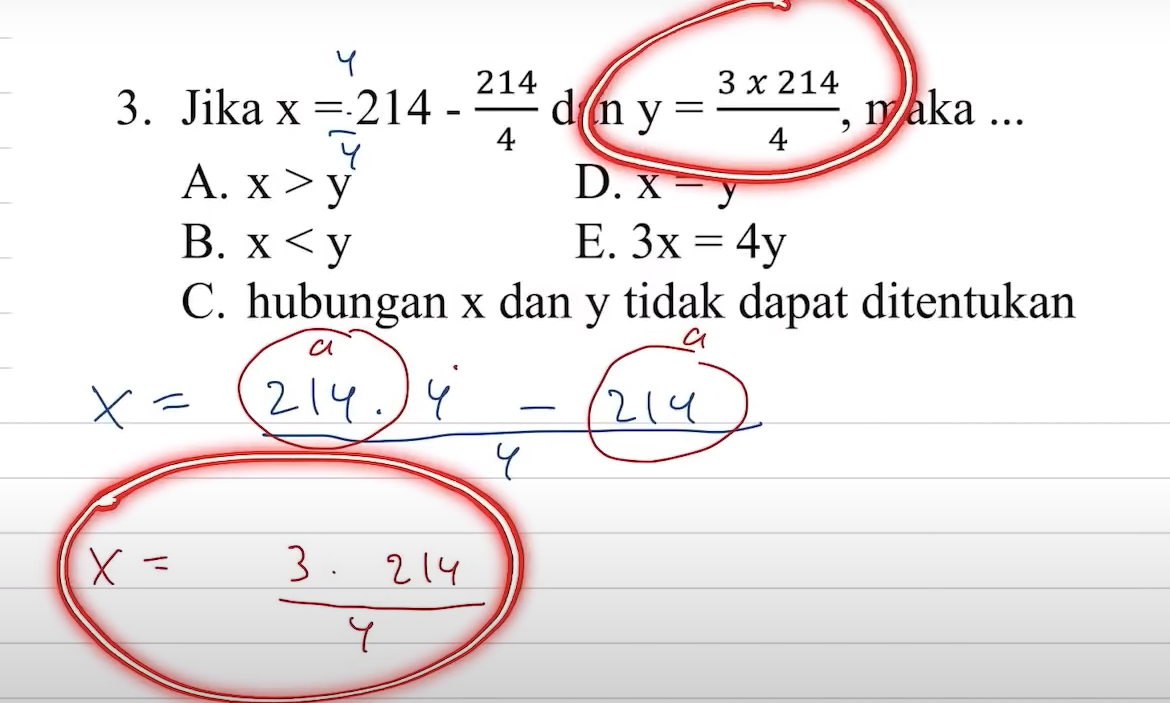 4
3. Jika x = 214 - 214/4 dan y = 3 x 214/4, maka ...
4
A. x > y
D. x = y
B. x < y
E. 3x = 4y
C. hubungan x dan y tidak dapat ditentukan
a a
x = 214 . 4 - 214
4
x = 3 . 214
4